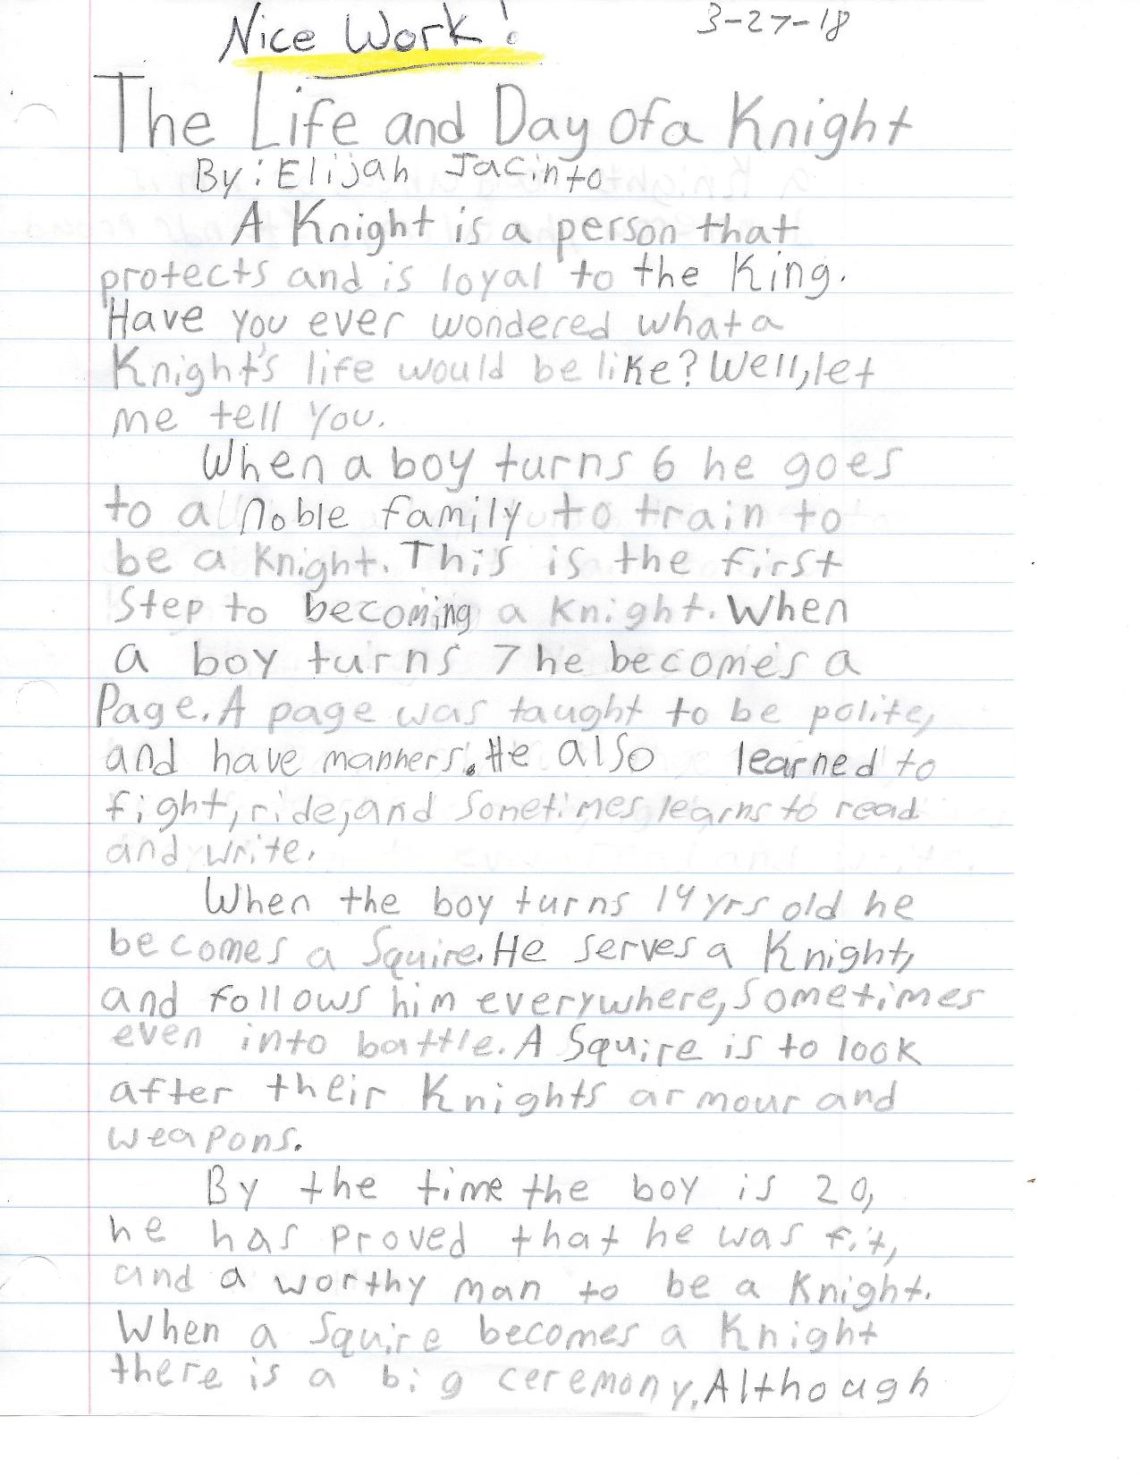 Nice Work!
3-27-18
The Life and Day Of a Knight
By: Elijah Jacinto
A Knight is a person that
protects and is loyal to the King.
Have you ever wondered what a
Knight's life would be like? Well, let
me tell you.
When a boy turns 6 he goes
to a noble family to train to
be a Knight. This is the first
Step to becoming a Knight. When
a boy turns 7 he becomes a
Page. A page was taught to be polite,
and have manners. He also learned to
fight, ride, and Sometimes learns to read
and write.
When the boy turns 14 yrs old he
becomes a Squire. He serves a Knight,
and follows him everywhere, Sometimes
even into battle. A Squire is to look
after their Knights armour and
weapons.
By the time the boy is 20,
he has proved that he was fit,
and a worthy man to be a Knight.
When a Squire becomes a Knight
there is a big ceremony. Although